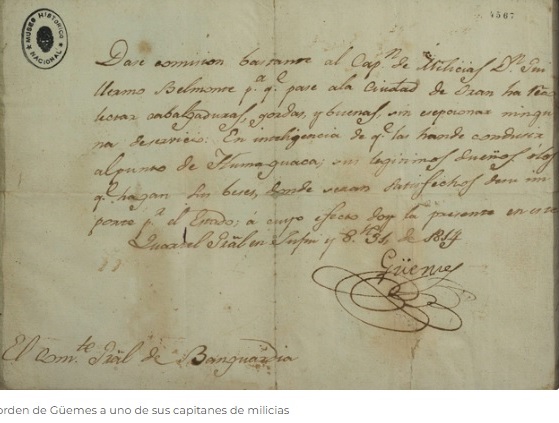 MUSEO HISTORICO NACIONAL
4567
Dase comision bastante al Cap.n de Milicias D.n Gui
llermo Belmonte p.a q.e pase ala Ciudad de Oran ha
lectar cabalgaduras, gordas, y buenas, sin ecepcionar ningu
na deservicio: En inteligencia de q.e las hande conducir
al punto de Humaguaca, sus legitimos dueños
q.e hagan sus beses, donde seran satisfechos desu im
porte p.r el Estado; á cuyo efecto doy la presente en este
Quartel Gral en Jujuy y 8.bre 31, de 1814
Güemes
El Com.te Gral de Banguardia
orden de Güemes a uno de sus capitanes de milicias